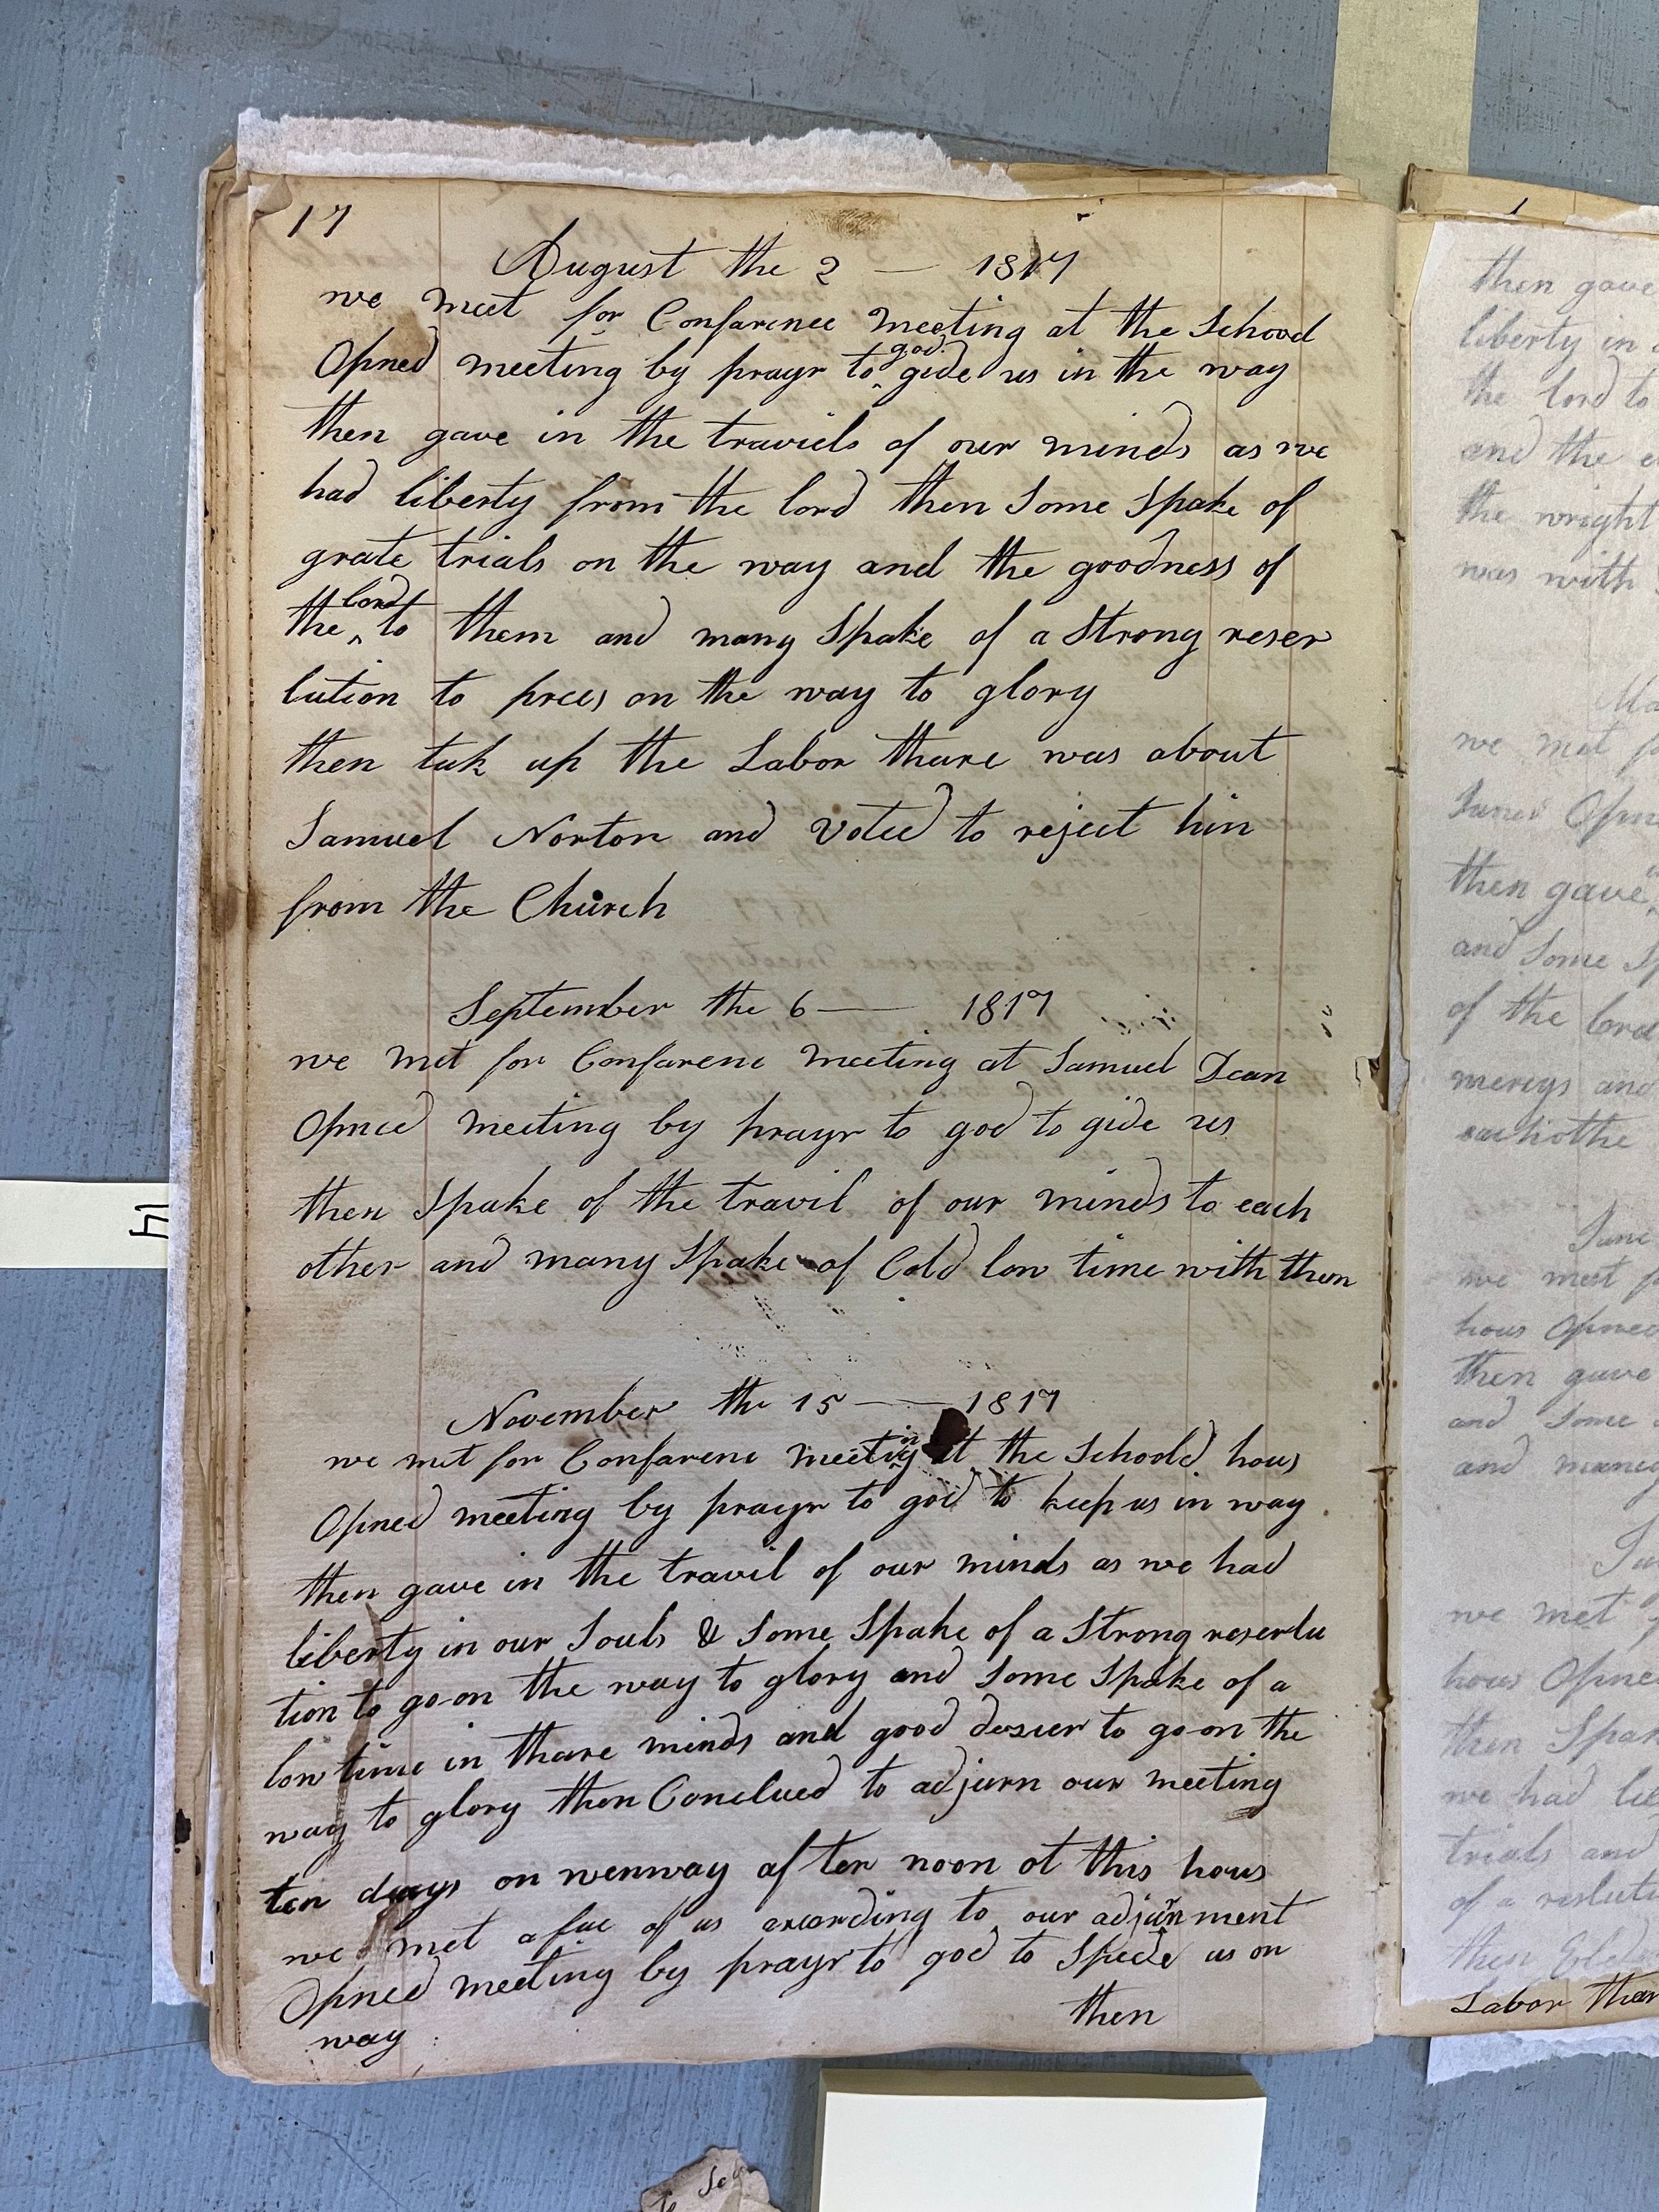 17
August the 2 — 1817
we meet for Confarence meeting at the School
Opned meeting by prayr to god gide us in the way
then gave in the traviels of our minds as we
had liberty from the lord then Some Spake of
grate trials on the way and the goodness of
the lord to them and many Spake of a Strong reser
lution to prees on the way to glory
then tuk up the Labor thare was about
Samuel Norton and voted to reject him
from the Church
September the 6 — 1817
we met for Confarenc meeting at Samuel Dean
Opned meeting by prayr to god to gide us
then Spake of the travil of our minds to each
other and many Spake of Cold low time with them
November the 15 — 1817
we met for Confarenc meeting at the Schoold hous
Opned meeting by prayr to god to keep us in way
then gave in the travil of our minds as we had
liberty in our Souls & Some Spake of a Strong reserlu
tion to go on the way to glory and Some Spake of a
low time in thare minds and good desier to go on the
way to glory then Conclued to adjurn our meeting
ten days on wenway after noon at this hous
we met a fue of us acording to our adjurnment
Opned meeting by prayr to god to Spede us on
way then
14
then gave
liberty in
the lord to
and the
the wright
was with
we met
then gave
and Some
of the lord
mercys and
June
we meet
hous Opned
then gave
and Some
and
we met
hous
then
we had
trials and
of a
then
Labor